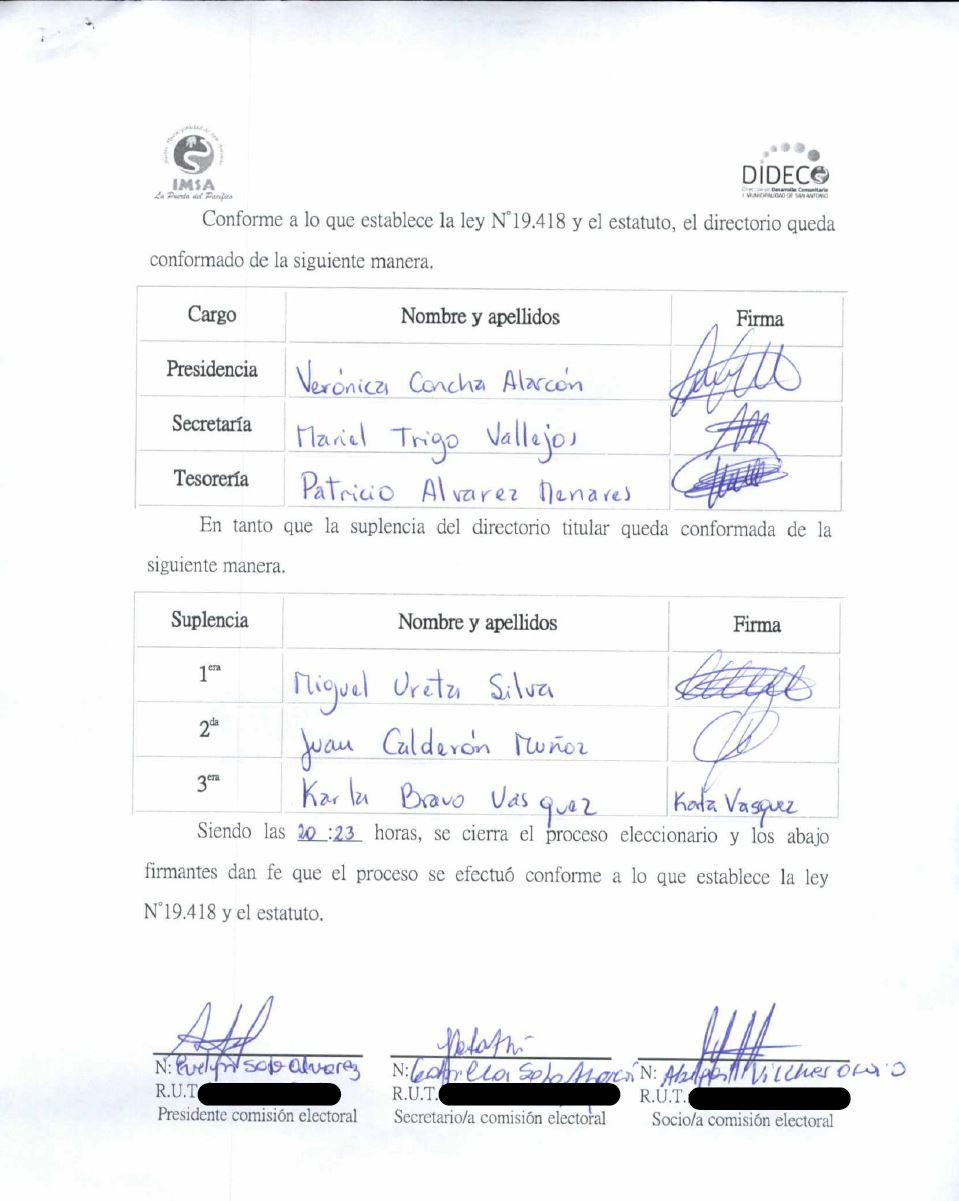 IMSA
La Puerta del Pacífico
DIDECO
Dirección de Desarrollo Comunitario
I. MUNICIPALIDAD DE SAN ANTONIO
Conforme a lo que establece la ley N°19.418 y el estatuto, el directorio queda
conformado de la siguiente manera.
Cargo Nombre y apellidos Firma
Presidencia Verónica Concha Alarcón
Secretaría Mariel Trigo Vallejos
Tesorería Patricio Alvarez Menares
En tanto que la suplencia del directorio titular queda conformada de la
siguiente manera.
Suplencia Nombre y apellidos Firma
1era Miguel Ureta Silva
2da Juan Calderón Muñoz
3era Karla Bravo Vasquez Karla Vasquez
Siendo las 20:23 horas, se cierra el proceso eleccionario y los abajo
firmantes dan fe que el proceso se efectuó conforme a lo que establece la ley
N°19.418 y el estatuto.
N: Evelyn Soto Alvarez N: Soto N: Vilches
R.U.T. R.U.T. R.U.T.
Presidente comisión electoral Secretario/a comisión electoral Socio/a comisión electoral